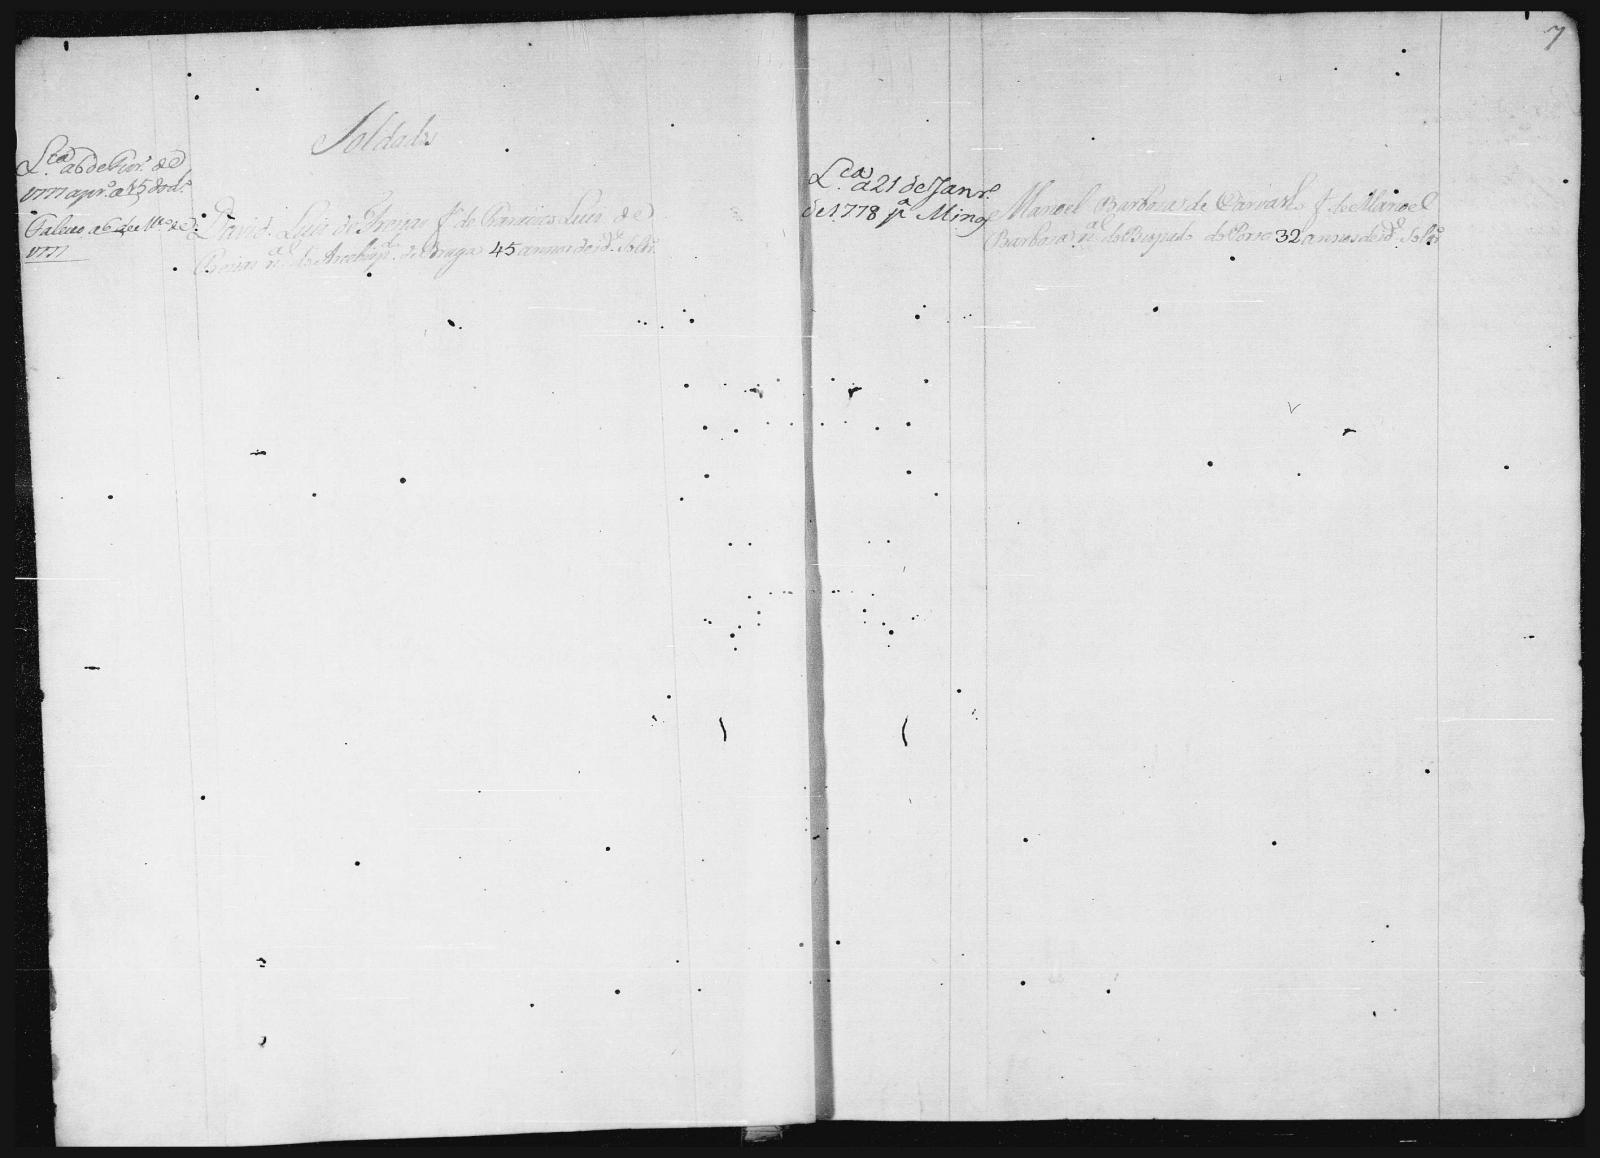 Soldados
L.ca a 6 de Fevr.º de
1771 apr.º a 15 do d.º
Faleceo a 6 de M.ço de
1771
David Luis de Freitas f.º de Luis de
Freitas n.al do Arcebisp.do de Braga 45 annos de id.e Solt.ro
7
L.ca a 21 de Janr.º
de 1778 p.ª Minas
Manoel Barbosa de Carvalho f.º de Manoel
Barbosa n.al do Bispado do Porto 32 annos de id.e Solt.ro